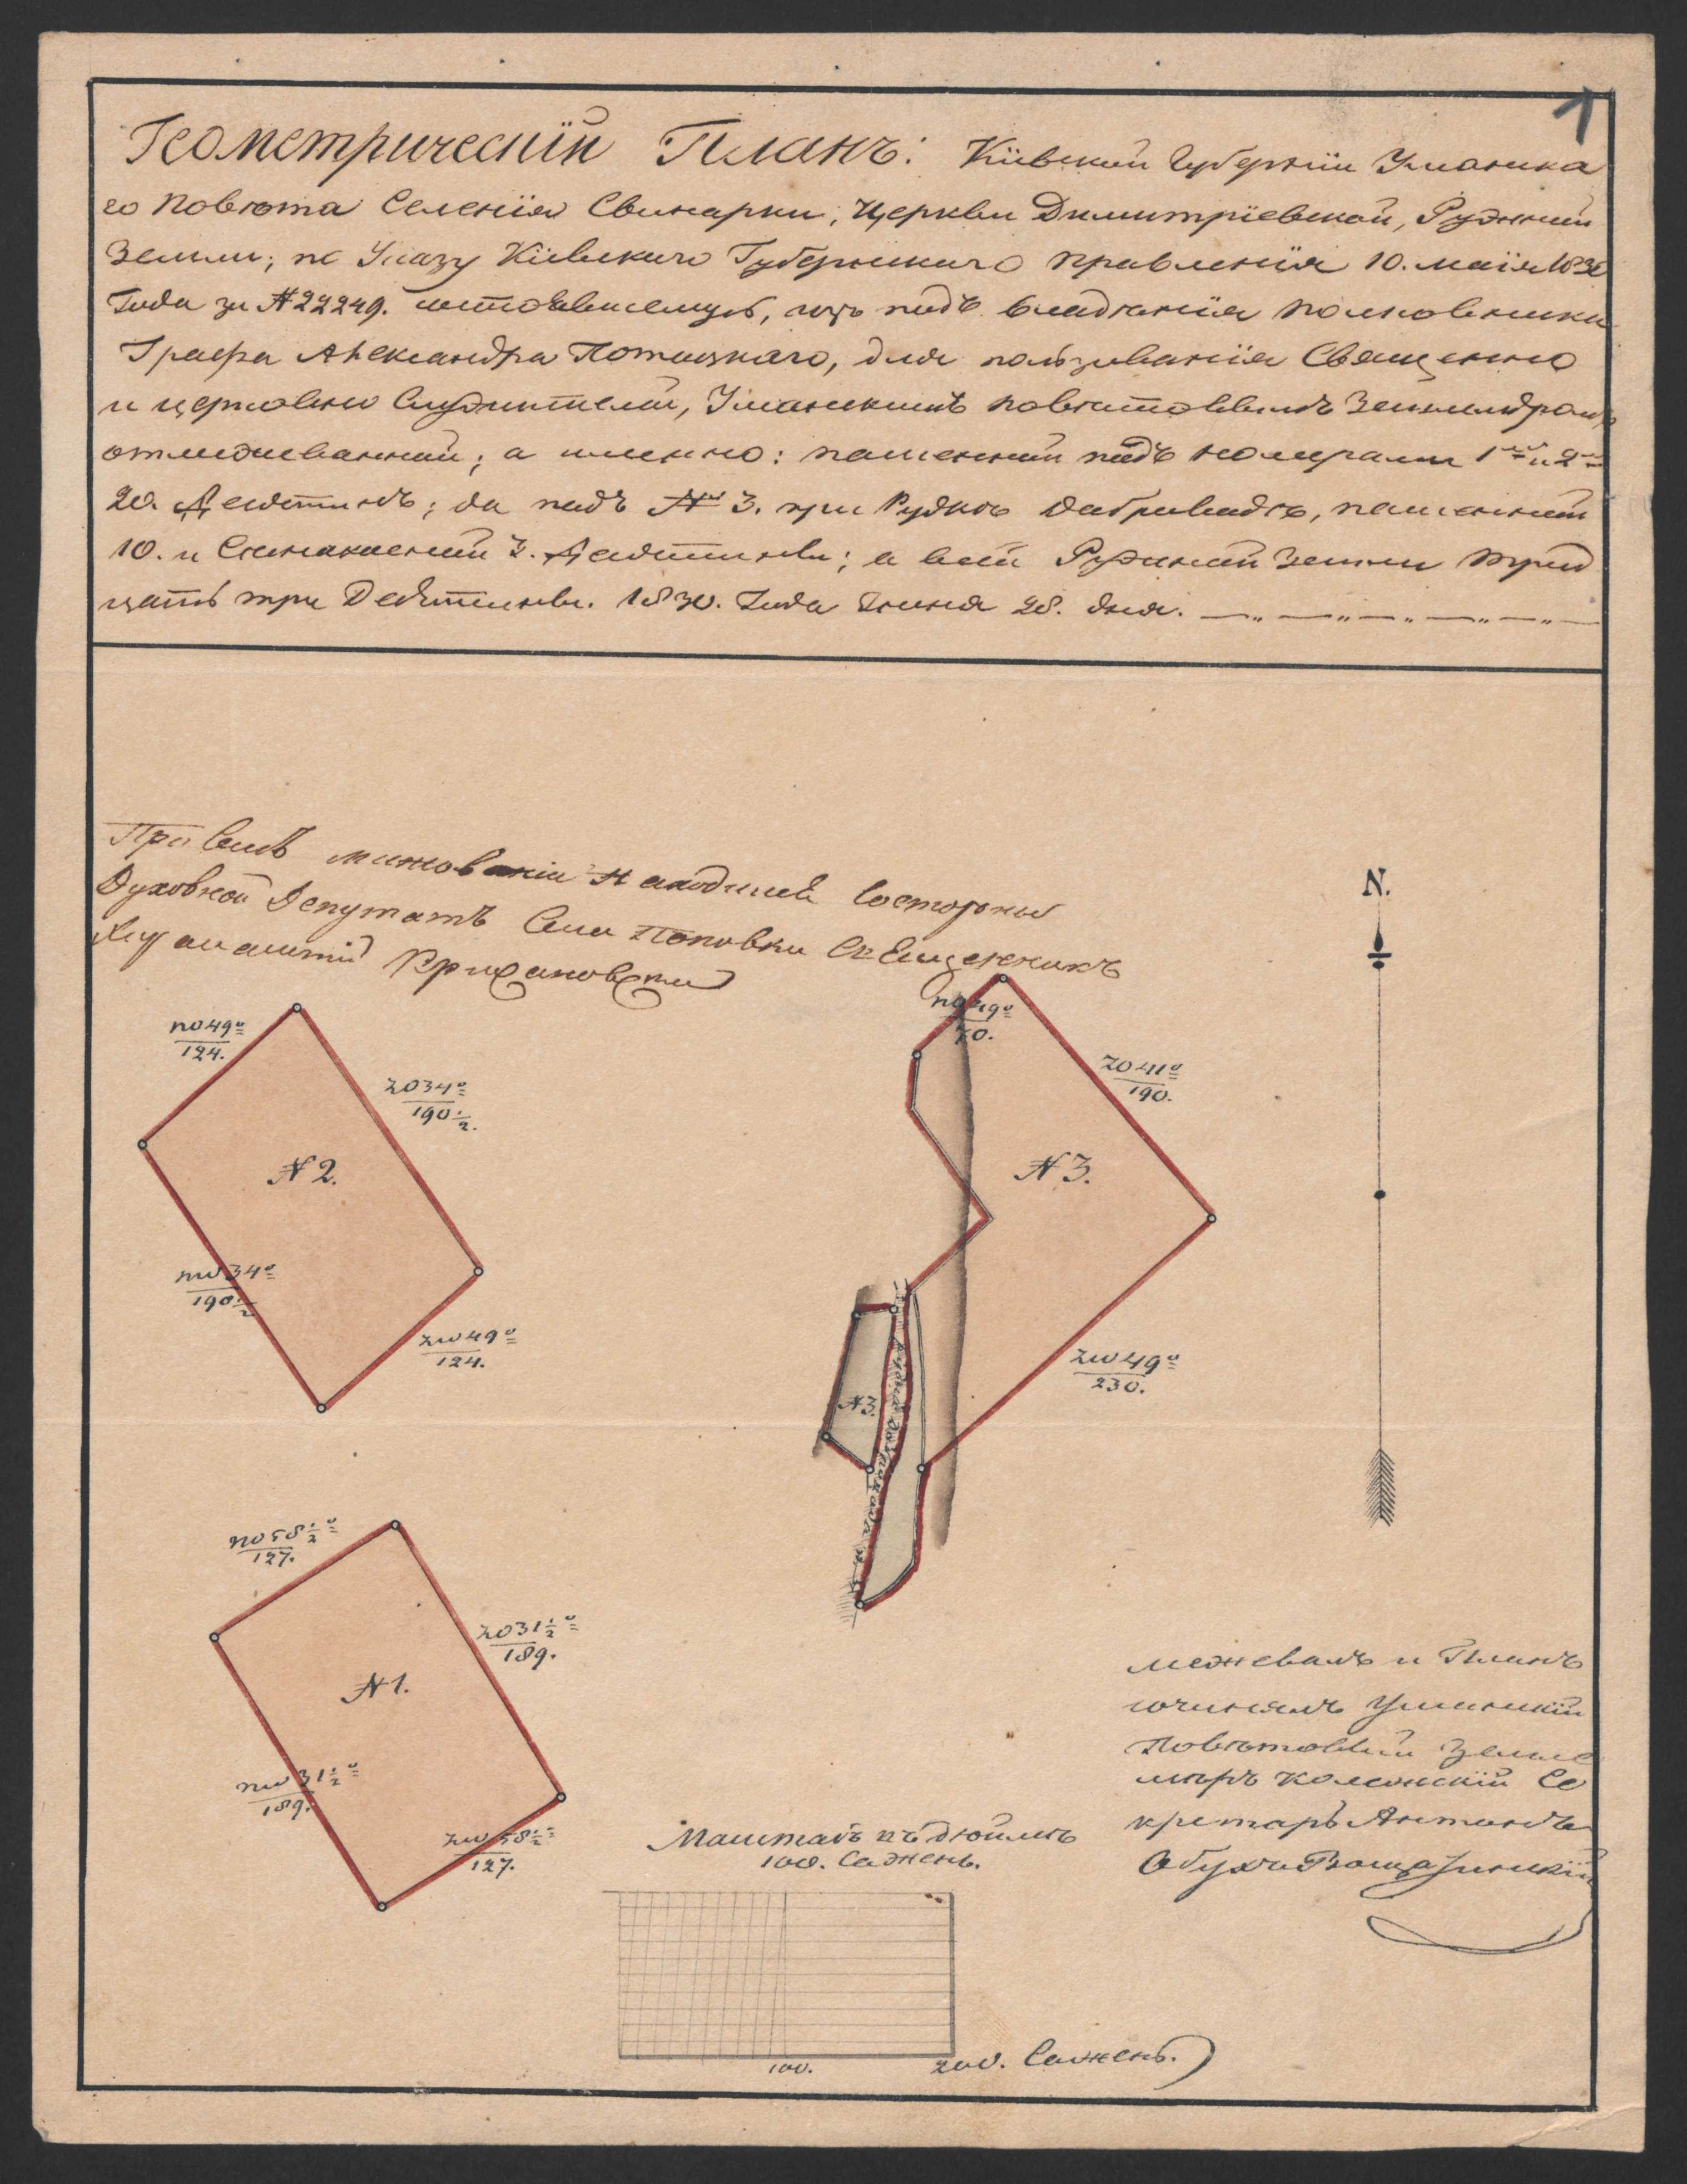 1
Геометрическій Планъ: Кіевской Губерніи Уманска
го Повѣта Селенія Свинарки, Церкви Димитріевской, Ружной
Земли; по Указу Кіевскаго Губернскаго Правленія 10. маія 1830
Года за № 22249. состоявшемусь, изъ подъ владѣнія Полковника
Графа Александра Потоцкаго, для пользованія Священно
и церковно Служителей, Уманскимъ повѣтовымъ Землемѣромъ
отмежеванной; а именно: пашенной подъ номерами 1мъ и 2мъ
20. Десятинъ; да подъ № 3. при Рудкѣ Добриводѣ, пашенной
10. и Сенокосной 3. Десятины; а всей Ружной Земли трид
цать три Десятины. 1830. Года Іюня 28. дня.
При Семъ Находился Состороны
Духовной Депутатъ Села Поповки Священникъ
N.
по 49º
124.
зо 34º
190 1/2.
№ 2.
пw 34º
190 1/2
зw 49º
124.
по 49º
70.
зо 41º
190.
№ 3.
зw 49º
230.
№ 3.
Рудка Добривода
по 58 1/2º
127.
зо 31 1/2º
189.
№ 1.
пw 31 1/2º
189.
зw 58 1/2º
127.
Межевалъ и Планъ
сочинялъ Уманскій
Повѣтовый Земле
мѣръ Колежскій Се
кретарь Антонъ
Маштабъ въ дюймѣ
100. Саженъ.
100.
200. Саженъ.